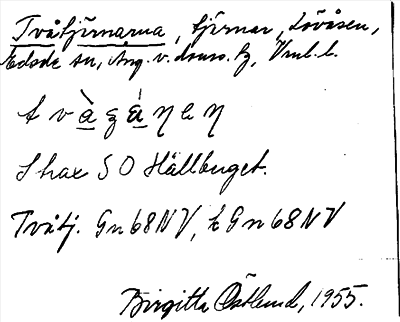 Tvåtjärnarna, tjärnar, Lövåsen,
Edsde sn, Äng. v. doms. hd, Vrml. l.
Strax SO Hällberget.
Tvåtj. Gn 68 NV, k Gn 68 NV
Birgitta Östlund, 1955.